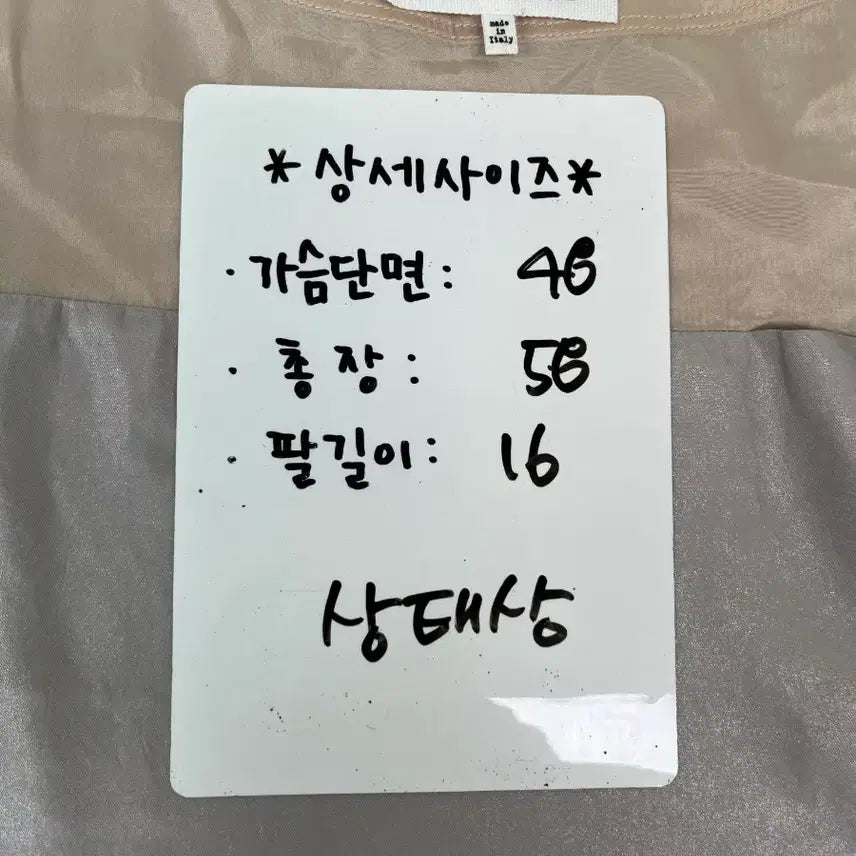 made
in
Italy
*상세사이즈*
· 가슴단면: 46
· 총장: 56
· 팔길이: 16
상태상